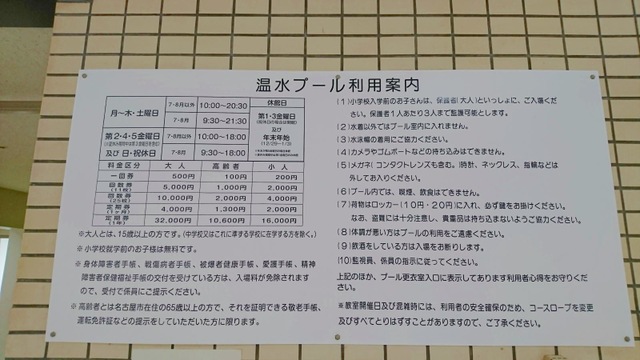 温水プール利用案内
月～木・土曜日
7・8月以外 10:00～20:30
7・8月 9:30～21:30
第2・4・5金曜日
及び日・祝休日
7・8月以外 10:00～18:00
7・8月 9:30～18:00
休館日
第1・3金曜日
及び
年末年始
(12/29～1/3)
料金区分 大人 高齢者 小人
一回券 500円 100円 200円
回数券(11枚) 5,000円 1,000円 2,000円
回数券(25枚) 10,000円 2,000円 4,000円
定期券(1ヶ月) 4,000円 1,300円 2,000円
定期券(1年) 32,000円 10,600円 16,000円
※大人とは、15歳以上の方です。(中学校又はこれに準ずる学校に在学する方を除く。)
※小学校就学前のお子様は無料です。
※身体障害者手帳、戦傷病者手帳、被爆者健康手帳、愛護手帳、精神
障害者保健福祉手帳の交付を受けている方は、入場料が免除されます
ので、受付で係員にご提示ください。
※高齢者とは名古屋市在住の65歳以上の方で、それを証明できる敬老手帳、
運転免許証などの提示をしていただいた方に限ります。
(1)小学校入学前のお子さんは、保護者(大人)といっしょに、ご入場くだ
さい。保護者1人あたり3人まで監視可能とします。
(2)水着以外ではプール室内に入れません。
(3)水泳帽の着用にご協力ください。
(4)カメラやゴムボートなどの持ち込みはできません。
(5)メガネ(コンタクトレンズも含む。)時計、ネックレス、指輪などは
外してお入りください。
(6)プール内では、喫煙、飲食はできません。
(7)荷物はロッカー(10円・20円)に入れ、必ず鍵をお掛けください。
なお、盗難には十分注意し、貴重品は持ち込まないようご協力ください。
(8)体調が悪い方はプールの利用をご遠慮ください。
(9)飲酒をしている方は入場をお断りします。
(10)監視員、係員の指示に従ってください。
上記のほか、プール更衣室入口に表示してあります利用者心得をお守りくだ
さい。
※教室開催日及び混雑時には、利用者の安全確保のため、コースロープを変更
及びすべてとりはずすことがありますので、ご了承ください。